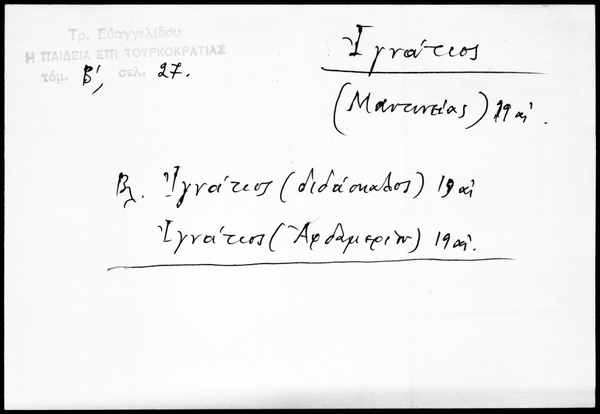 Τρ. Εὐαγγελίδου
Η ΠΑΙΔΕΙΑ ΕΠΙ ΤΟΥΡΚΟΚΡΑΤΙΑΣ
τόμ. Β', σελ. 27.
Ἰγνάτιος
(Μαντινείας) 19 αἰ.
Βλ. Ἰγνάτιος (διδάσκαλος) 19 αἰ
Ἰγνάτιος (Ἀρδαμερίου) 19 αἰ.